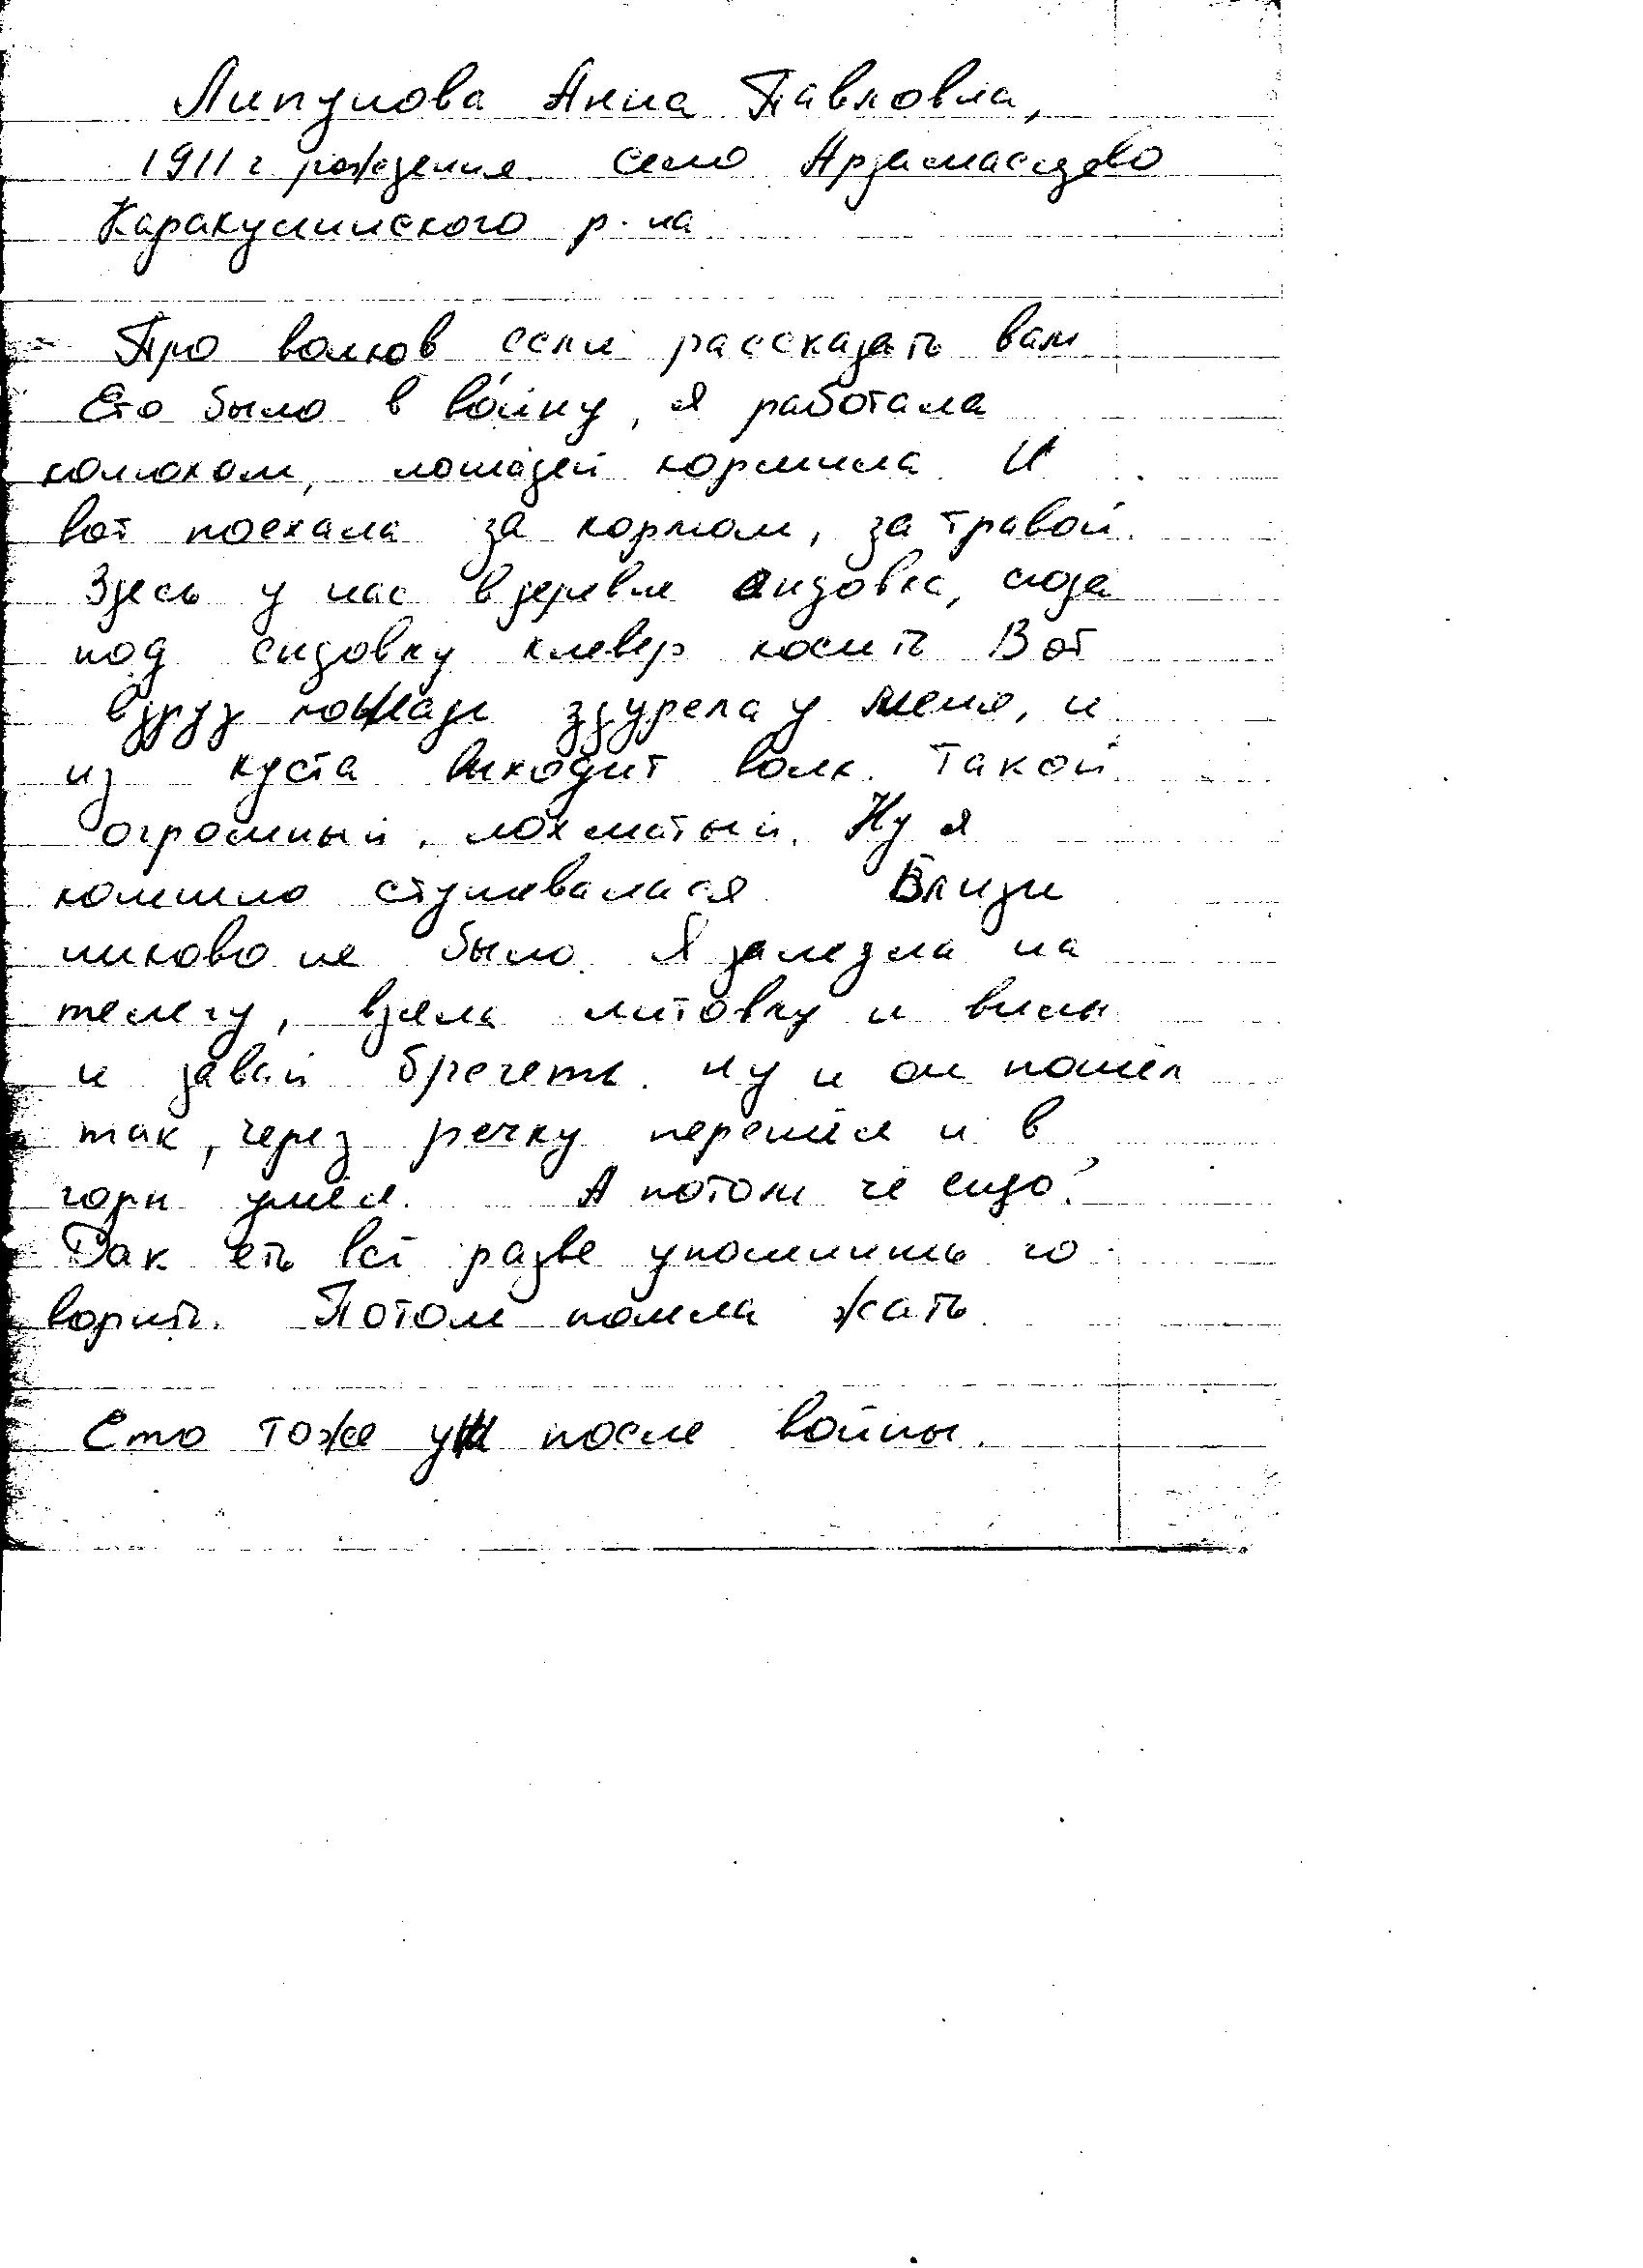 Липунова Анна Павловна,
1911 г. рождения. село Арзамасцево
Каракулинского р-на
- Про волков если рассказать вам
Ето было в войну, я работала
конюхом, лошадей кормила. И
вот поехала за кормом, за травой.
Здесь у нас в деревне сидовка, сюда
под сидовку клевер косить Вот
вдруг лошадь здурела у меня, и
из куста выходит волк. Такой
огромный, лохматый. Ну я
конешно стушевалася. Вблизи
никово не было. Я залезла на
телегу, взяла литовку и вилы
и давай бречеть. ну и он пошёл
так, через речку перешёл и в
горы ушёл. А потом чё ещо?
Дак еть всё разве упомнишь го
ворить. Потом пошла жать.
Ето тоже уж после войны.